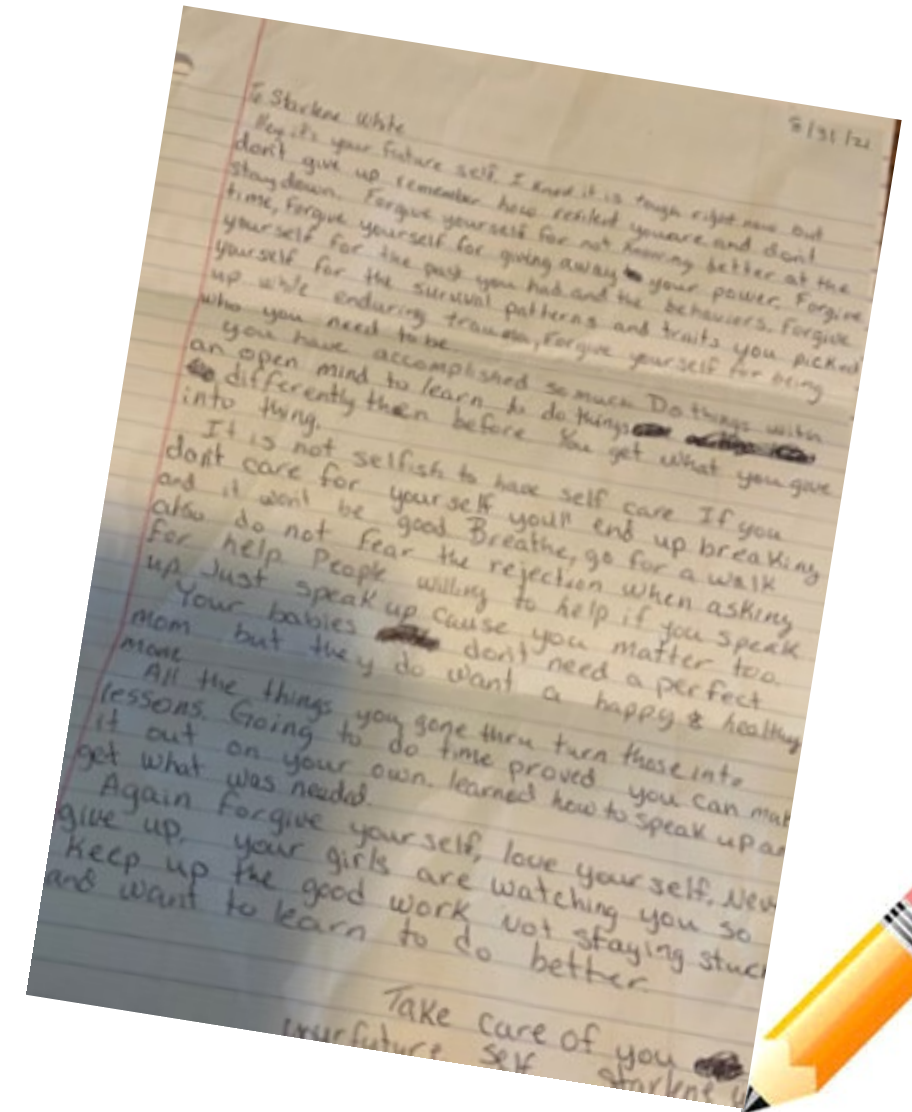 8/31/22
To Starlene White
Hey it's your future self. I know it is tough right now but
don't give up remember how resilent you are and don't
stay down. Forgive yourself for not knowing better at the
time, Forgive yourself for giving away your power. Forgive
yourself for the past you had and the behaviors. Forgive
yourself for the survival patterns and traits you picked
up while enduring trauma, Forgive yourself for being
who you need to be.
you have accomplished so much Do things with
an open mind to learn to do things
differently then before You get what you give
into thing.
It is not selfish to have self care If you
don't care for yourself you'll end up breaking
and it won't be good Breathe, go for a walk
also do not fear the rejection when asking
for help People willing to help if you speak
up. Just speak up cause you matter too.
Your babies don't need a perfect
mom but they do want a happy & healthy
more
All the things you gone thru turn those into
lessons. Going to do time proved you can mak
it out on your own. learned how to speak up an
get what was needed.
Again forgive yourself, love yourself, Nev
give up, your girls are watching you so
keep up the good work not staying stuc
and want to learn to do better.
Take care of you
your future self Starlene